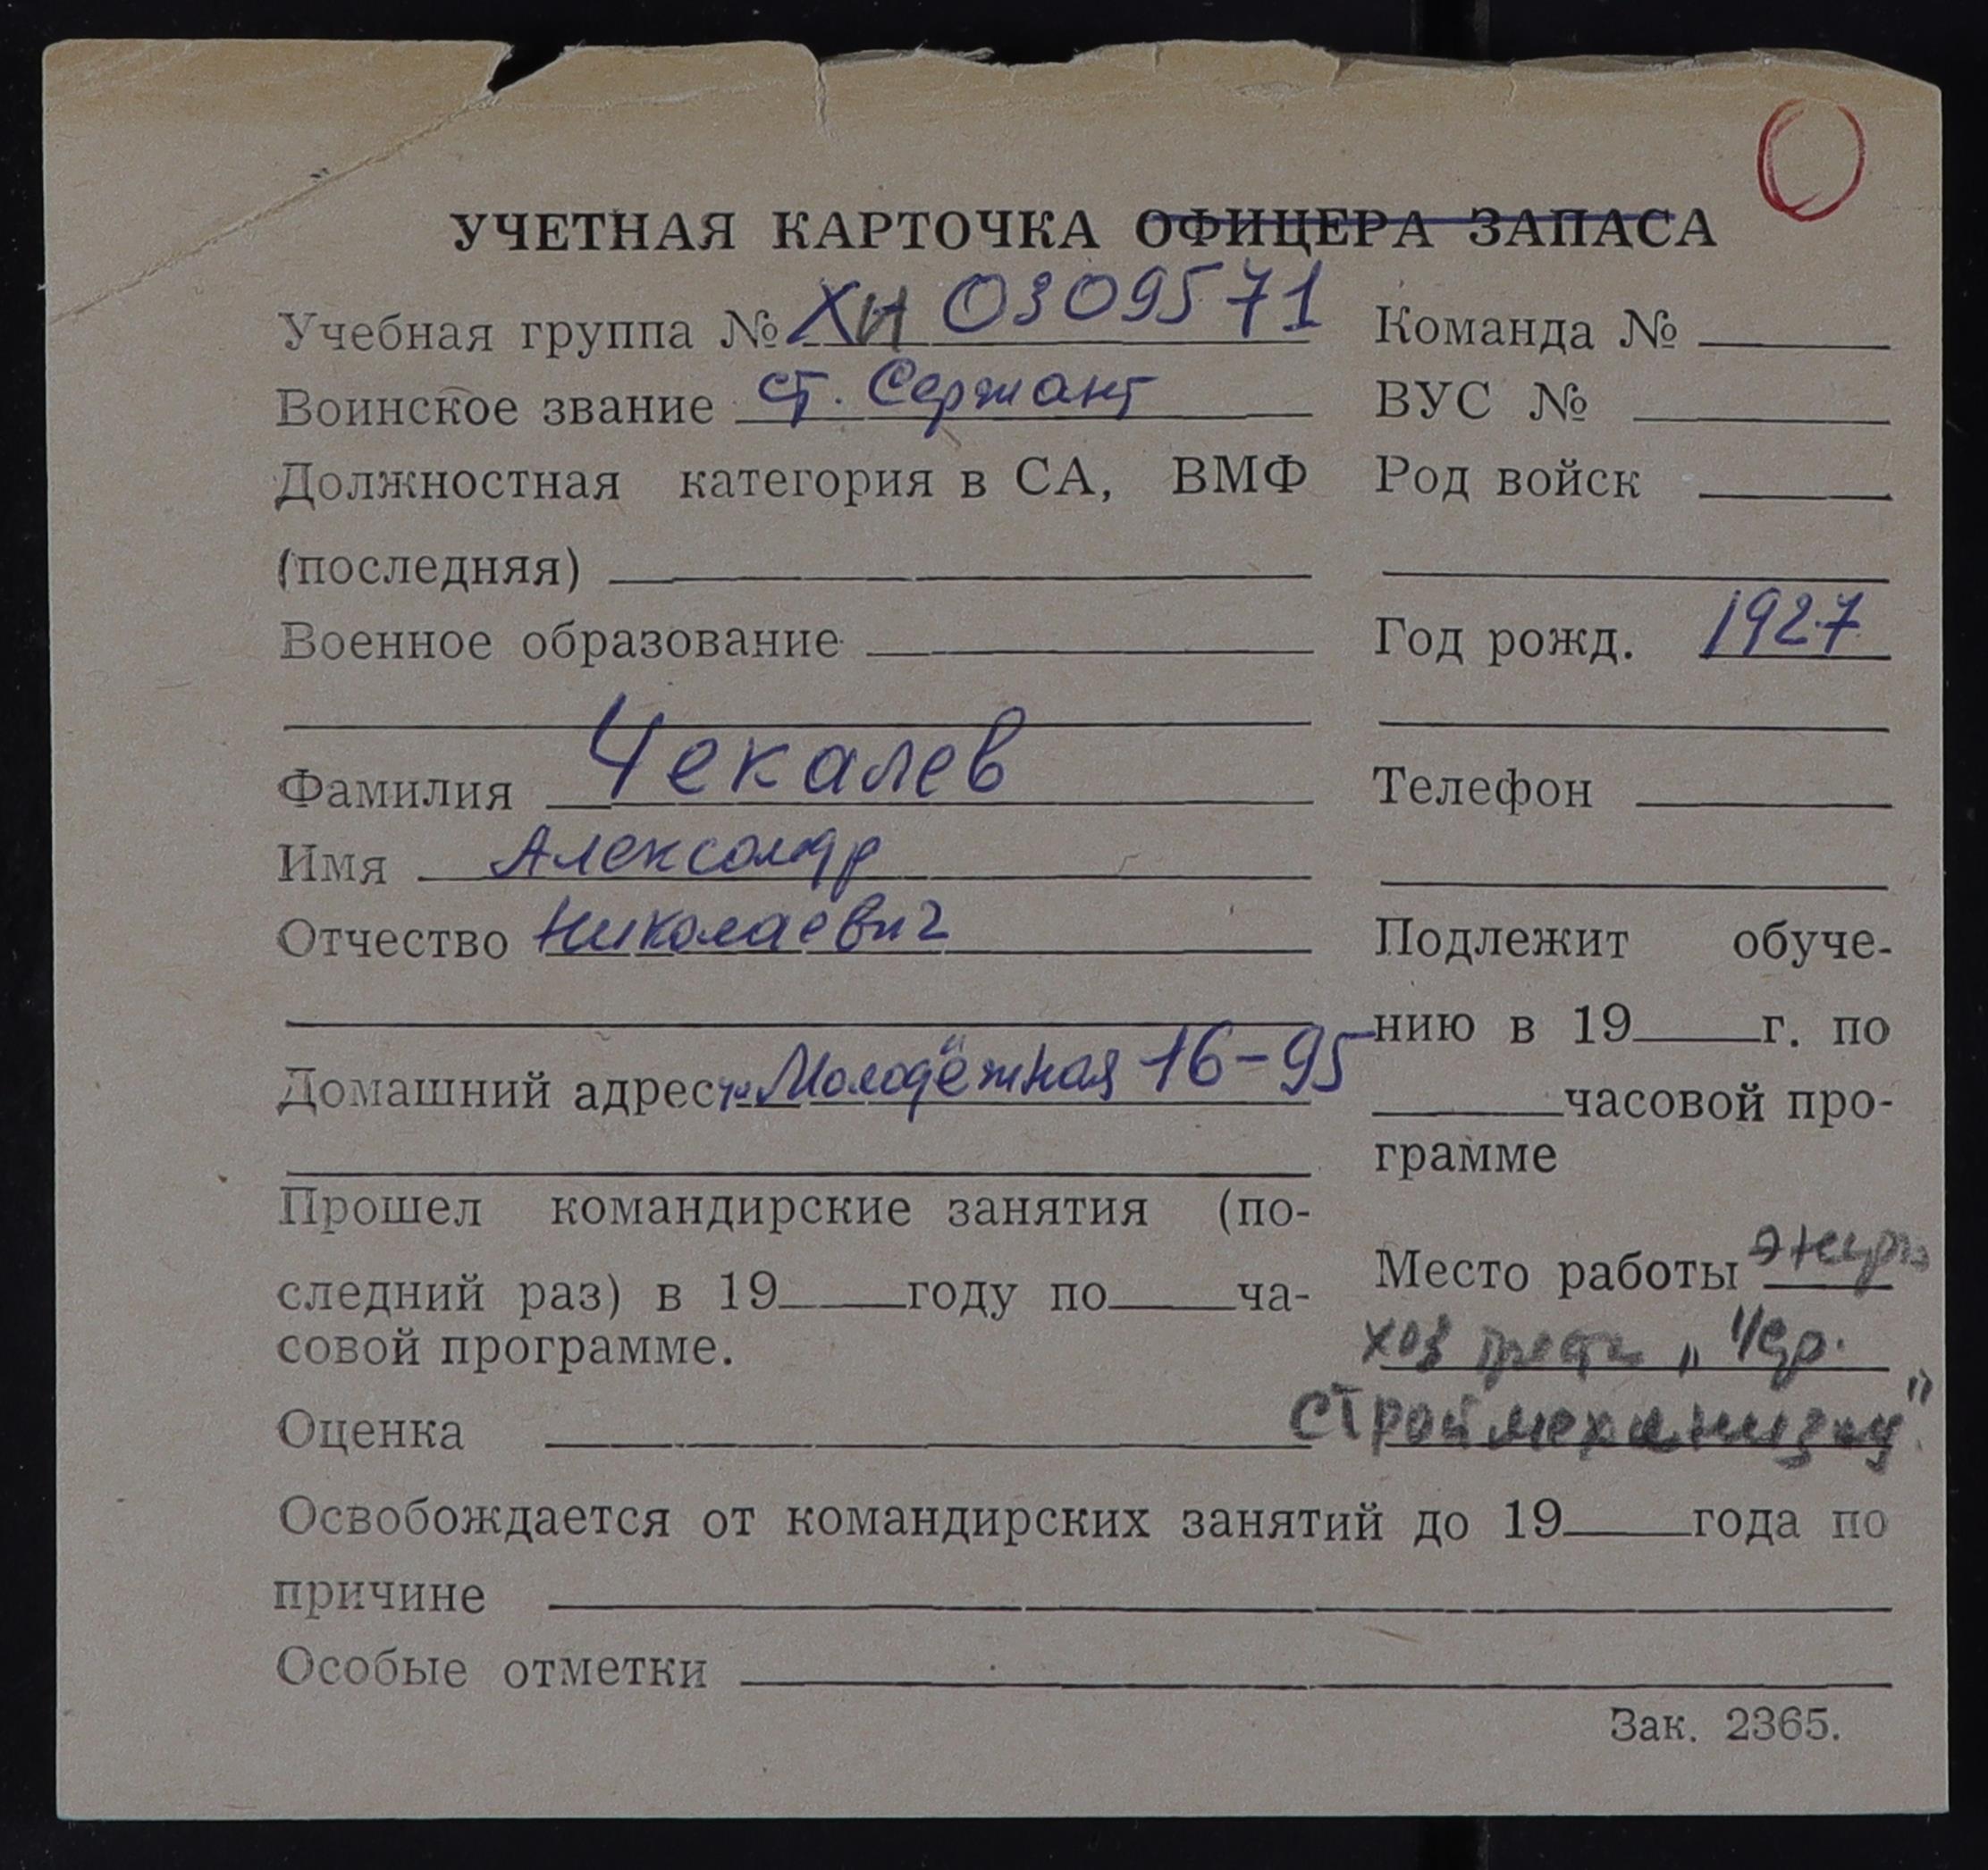 УЧЕТНАЯ КАРТОЧКА ОФИЦЕРА ЗАПАСА
Учебная группа № ХН 0309571
Воинское звание ст. Сержант
Должностная категория в СА, ВМФ
(последняя)
Военное образование
Фамилия Чекалев
Имя Александр
Отчество Николаевич
Домашний адрес ул. Молодёжная 16-95
Прошел командирские занятия (по-
следний раз) в 19 году по ча-
совой программе.
Оценка
Команда №
ВУС №
Род войск
Год рожд. 1927
Телефон
Подлежит обуче-
нию в 19 г. по
часовой про-
грамме
Место работы
хоз "Чер.
строймеханизац"
Освобождается от командирских занятий до 19 года по
причине
Особые отметки
Зак. 2365.